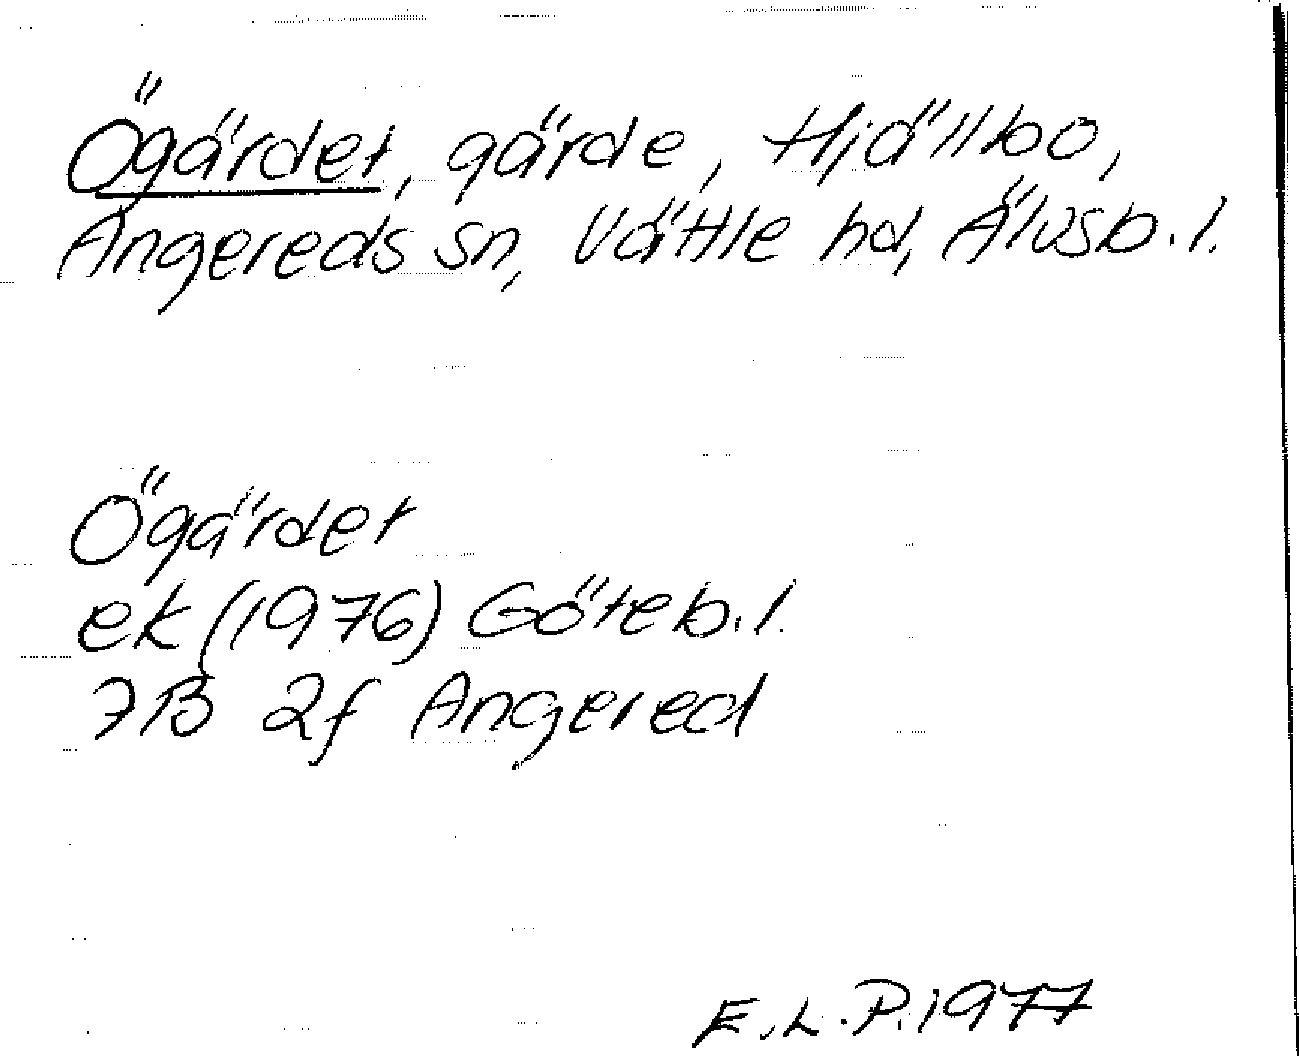 Ögärdet, gärde, Hjällbo,
Angereds sn, Vättle hd, Älvsb.l.
Ögärdet
ek (1976) Göteb.l.
7B 2f Angered
E.L.P. 1977